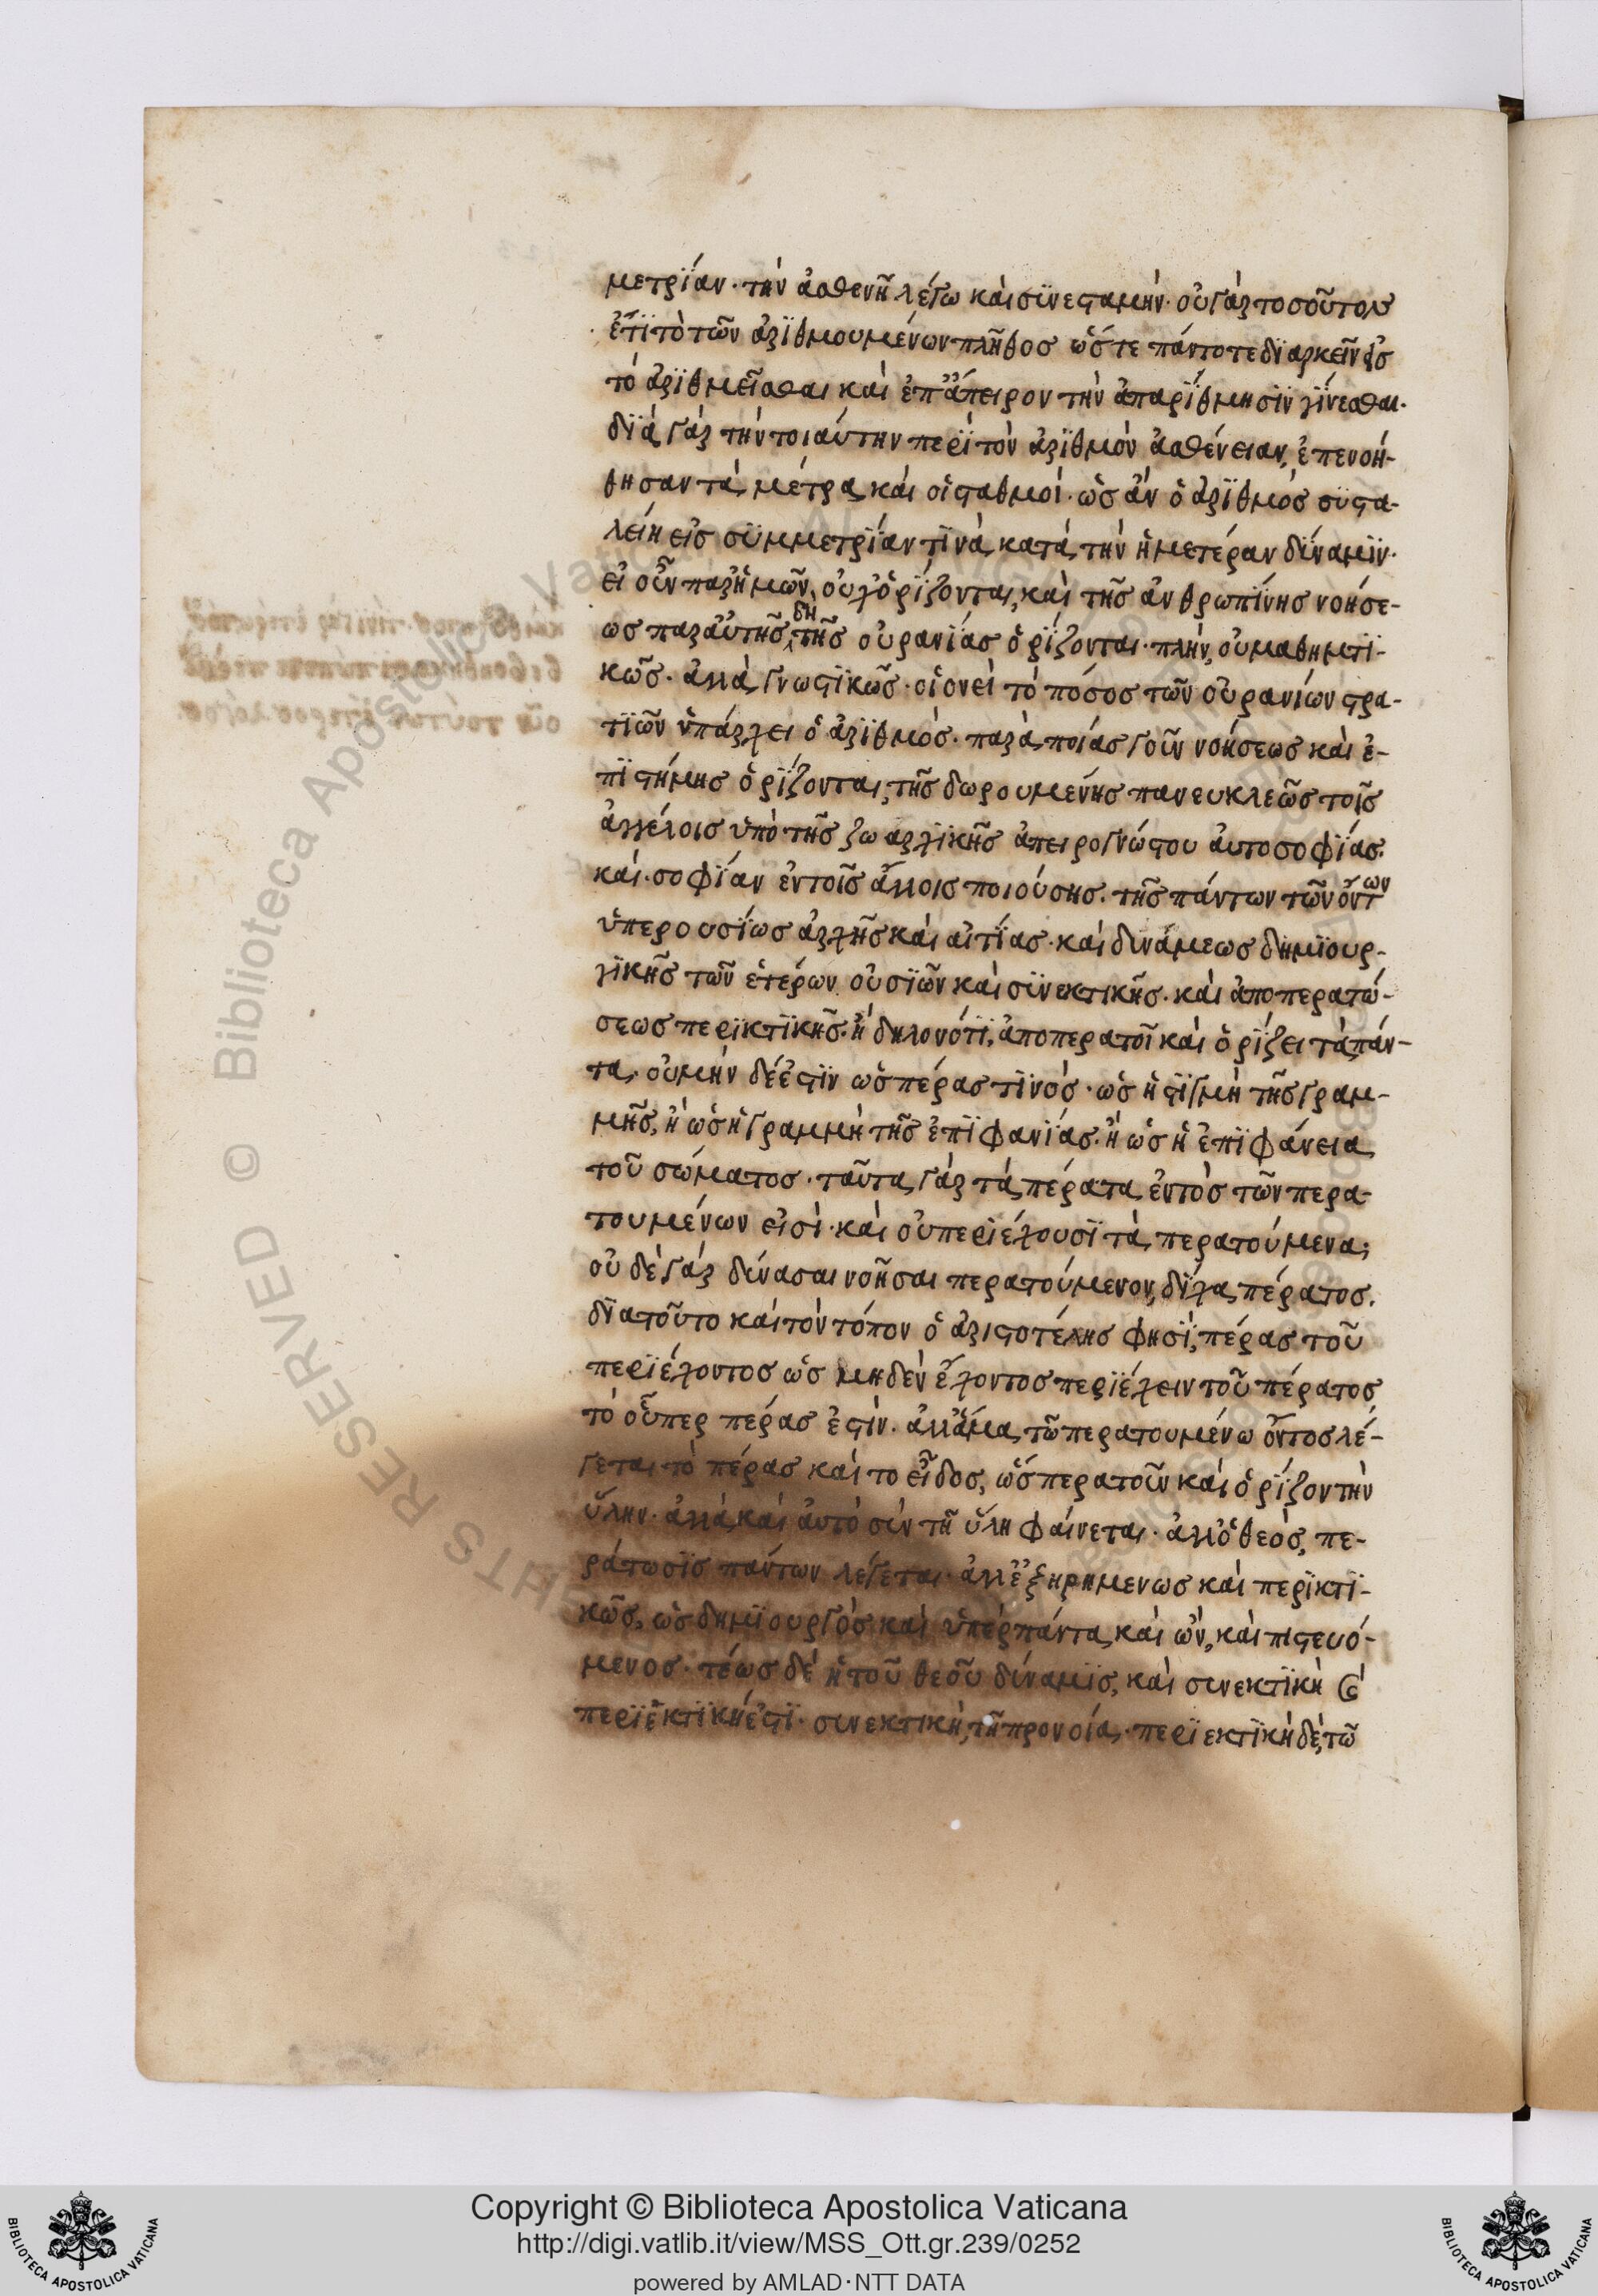 μετρίαν· τὴν ἀσθενῆ λέγω καὶ σϋνεσταμὴν· οὐ γὰρ τοσοῦτον
ἐστῒ τὸ τῶν ἀρϊθμουμένων πλῆθος ὥστε πάντοτε δϊαρκεῖν εἰς
τὸ ἀρϊθμεῖσθαι καὶ ἐπ' ἄπειρον τὴν ἀπαρίθμησϊν γίνεσθαι·
δϊὰ γὰρ τὴν τοιαύτην περὶ τὸν ἀρϊθμὸν ἀσθένειαν, ἐπενοή-
θησαν τὰ μέτρα καὶ οἱ σταθμοί· ὡς ἂν ὁ ἀρϊθμὸς σϋστα-
λείη εἰς σϋμμετρίαν τϊνὰ κατὰ τὴν ἡμετέραν δύναμϊν·
εἰ οὖν παρ' ἡμῶν, οὐχ' ὁρίζονται, καὶ τῆς ἀνθρωπίνης νοήσε-
ως παρ' αὐτῆς δὴ τῆς οὐρανίας ὁρίζονται· πλὴν, οὐ μαθημτϊ-
κῶς· ἀλλὰ γνωστϊκῶς· οἱονεὶ τὸ πόσος τῶν οὐρανίων στρα-
τϊῶν ὑπάρχει ὁ ἀρϊθμός· παρὰ ποίας γοῦν νοήσεως καὶ ἐ-
πϊστήμης ὁρίζονται, τῆς δωρουμένης πανευκλεῶς τοῖς
ἀγγέλοις ὑπὸ τῆς ζωαρχϊκῆς ἀπειρογνώστου αὐτοσοφίας·
καὶ· σοφίαν ἐν τοῖς ἄλλοις ποιούσης· τῆς πάντων τῶν ὄντων
ὑπερουσίως ἀρχῆς καὶ αἰτίας· καὶ δυνάμεως δημϊουρ-
γϊκῆς τῶν ἑτέρων οὐσϊῶν καὶ σϋνεκτικῆς· καὶ ἀποπερατώ-
σεως περϊκτϊκῆς· ἡ δηλονότϊ, ἀποπερατοῖ καὶ ὁρίζει τὰ πάν-
τα· οὐ μὴν δέ ἐστϊν ὡς πέρας τϊνός· ὡς ἡ στϊγμὴ τῆς γραμ-
μῆς, ἢ ὡς ἡ γραμμὴ τῆς ἐπϊφανίας· ἢ ὡς ἡ ἐπϊφάνεια
τοῦ σώματος· ταῦτα γὰρ τὰ πέρατα ἐντὸς τῶν περα-
τουμένων εἰσὶ· καὶ οὐ περιέχουσϊ τὰ περατούμενα;
οὐδὲ γὰρ δύνασαι νοῆσαι περατούμενον, δίχα πέρατος.
δϊατοῦτο καὶ τὸν τόπον ὁ ἀριστοτέλης φησὶ, πέρας τοῦ
περϊέχοντος ὡς μηδὲν ἔχοντος περϊέχειν τοῦ πέρατος
τὸ οὗπερ πέρας ἐστὶν· ἀλλ' ἅμα τῶ περατουμένω ὄντος λέ-
γεται τὸ πέρας καὶ το εἶδος, ὡς περατοῦν καὶ ὁρίζον τὴν
ὕλην· ἀλλὰ καὶ αὐτὸ σὺν τῆ ὕλη φαίνεται· ἀλλ' ὁ θεὸς, πε-
ράτωσϊς πάντων λέγεται· ἀλλ' ἐξηρημενως καὶ περϊκτϊ-
κῶς, ὡς δημϊουργὸς καὶ ὑπὲρ πάντα, καὶ ὢν, καὶ πιστευό-
μενος· τέως δὲ ἡ τοῦ θεοῦ δύναμϊς, καὶ συνεκτϊκὴ ϗ
περϊεκτϊκή ἐστϊ· συνεκτικὴ, τῆ προνοία· περϊεκτϊκὴ δὲ, τῶ
Copyright © Biblioteca Apostolica Vaticana
http://digi.vatlib.it/view/MSS_Ott.gr.239/0252
powered by AMLAD·NTT DATA